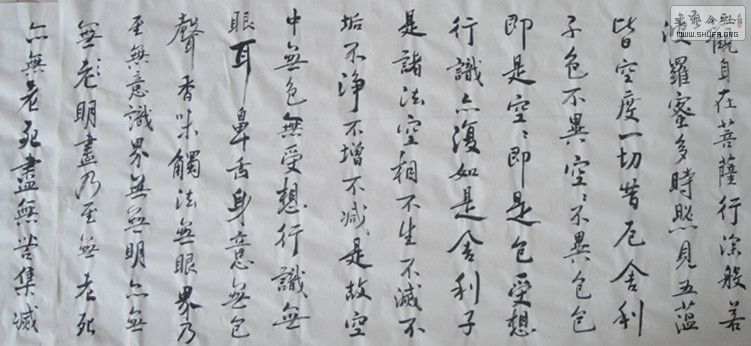 觀自在菩薩行深般若
波羅蜜多時照見五蘊
皆空度一切苦厄舍利
子色不異空〻不異色色
即是空〻即是色受想
行識亦復如是舍利子
是諸法空相不生不滅不
垢不净不增不减是故空
中無色無受想行識無
眼耳鼻舌身意無色
聲香味觸法無眼界乃
至無意識界無無明亦無
無老明盡乃至無老死
亦無老死盡無苦集滅
WWW.SHUFA.ORG